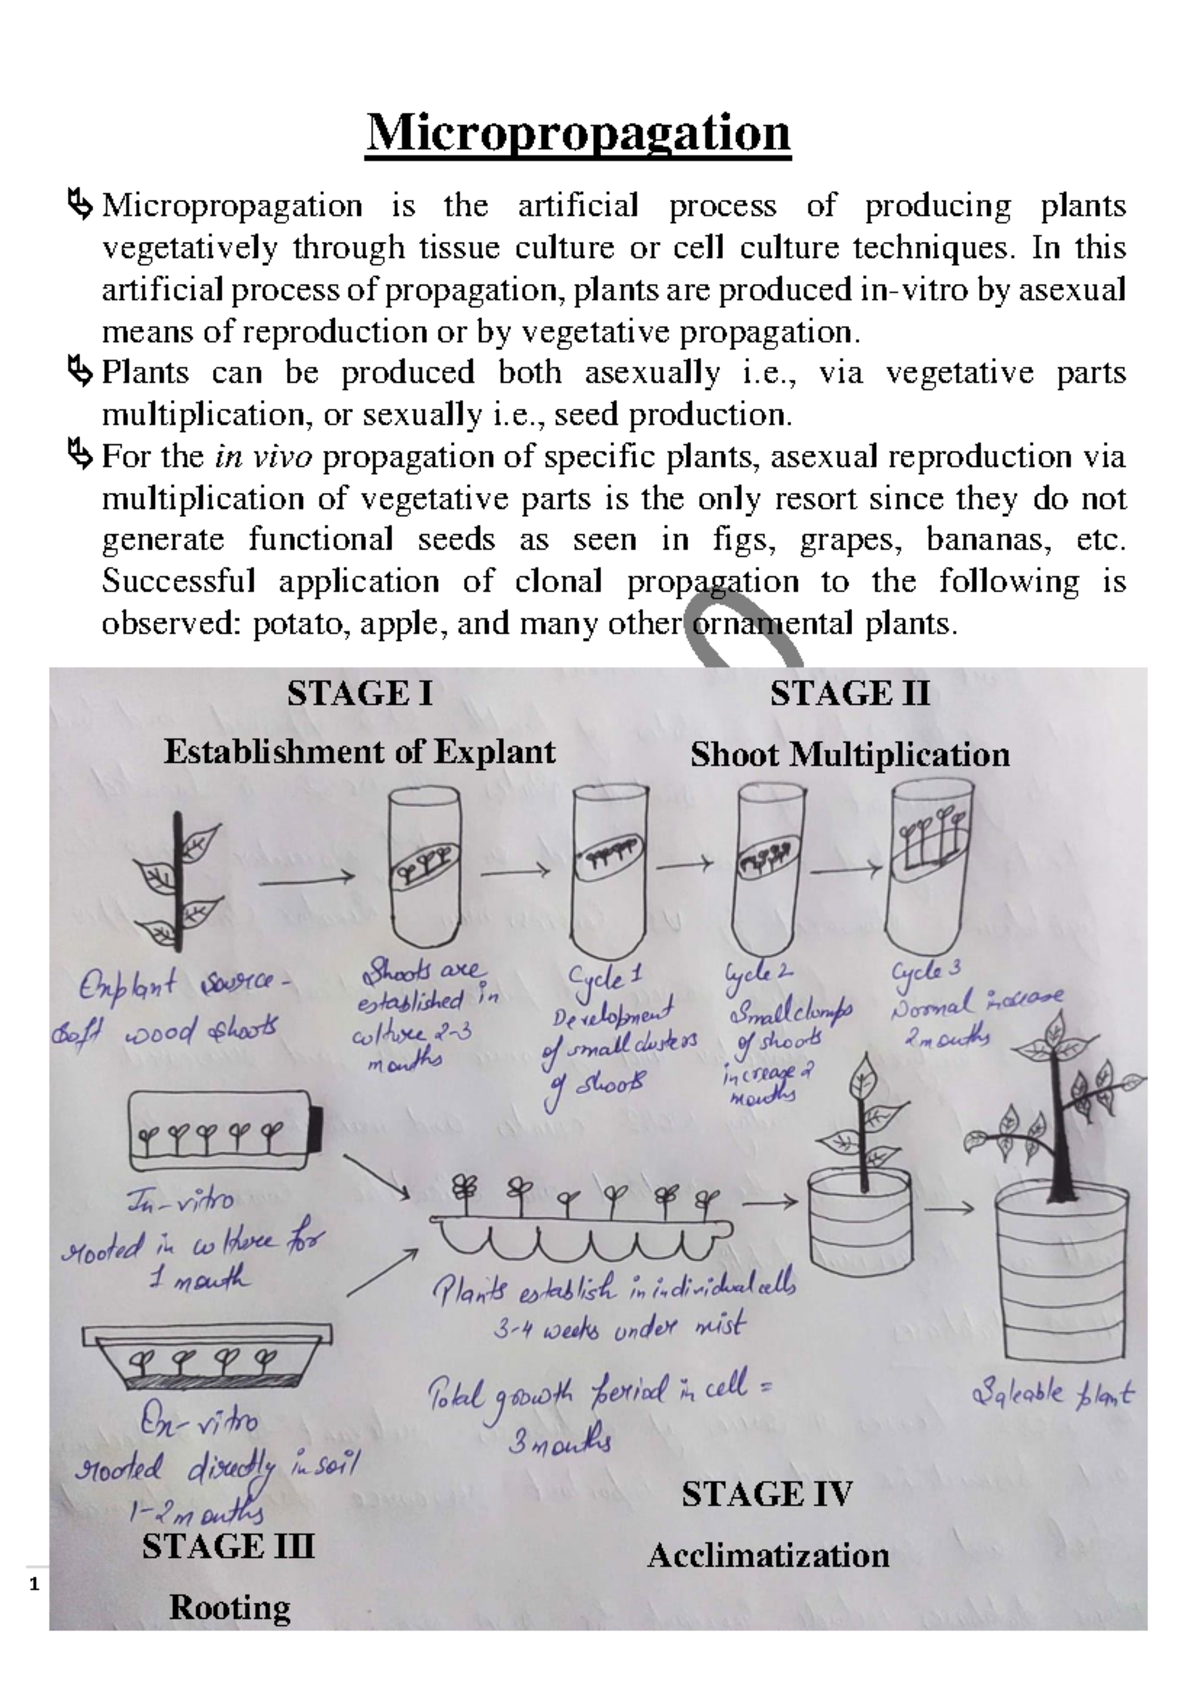 Micropropagation
Micropropagation is the artificial process of producing plants
vegetatively through tissue culture or cell culture techniques. In this
artificial process of propagation, plants are produced in-vitro by asexual
means of reproduction or by vegetative propagation.
Plants can be produced both asexually i.e., via vegetative parts
multiplication, or sexually i.e., seed production.
For the in vivo propagation of specific plants, asexual reproduction via
multiplication of vegetative parts is the only resort since they do not
generate functional seeds as seen in figs, grapes, bananas, etc.
Successful application of clonal propagation to the following is
observed: potato, apple, and many other ornamental plants.
STAGE I
Establishment of Explant
STAGE II
Shoot Multiplication
Explant source -
Soft wood shoots
Shoots are
established in
culture 2-3
months
Cycle 1
Development
of small clusters
of shoots
Cycle 2
Small clumps
of shoots
increase 2
months
Cycle 3
Normal increase
2 months
In-vitro
rooted in culture for
1 month
Plants establish in individual cells
3-4 weeks under mist
Total growth period in cell =
3 months
Saleable plant
En-vitro
rooted directly in soil
1-2 months
STAGE III
Rooting
STAGE IV
Acclimatization
1